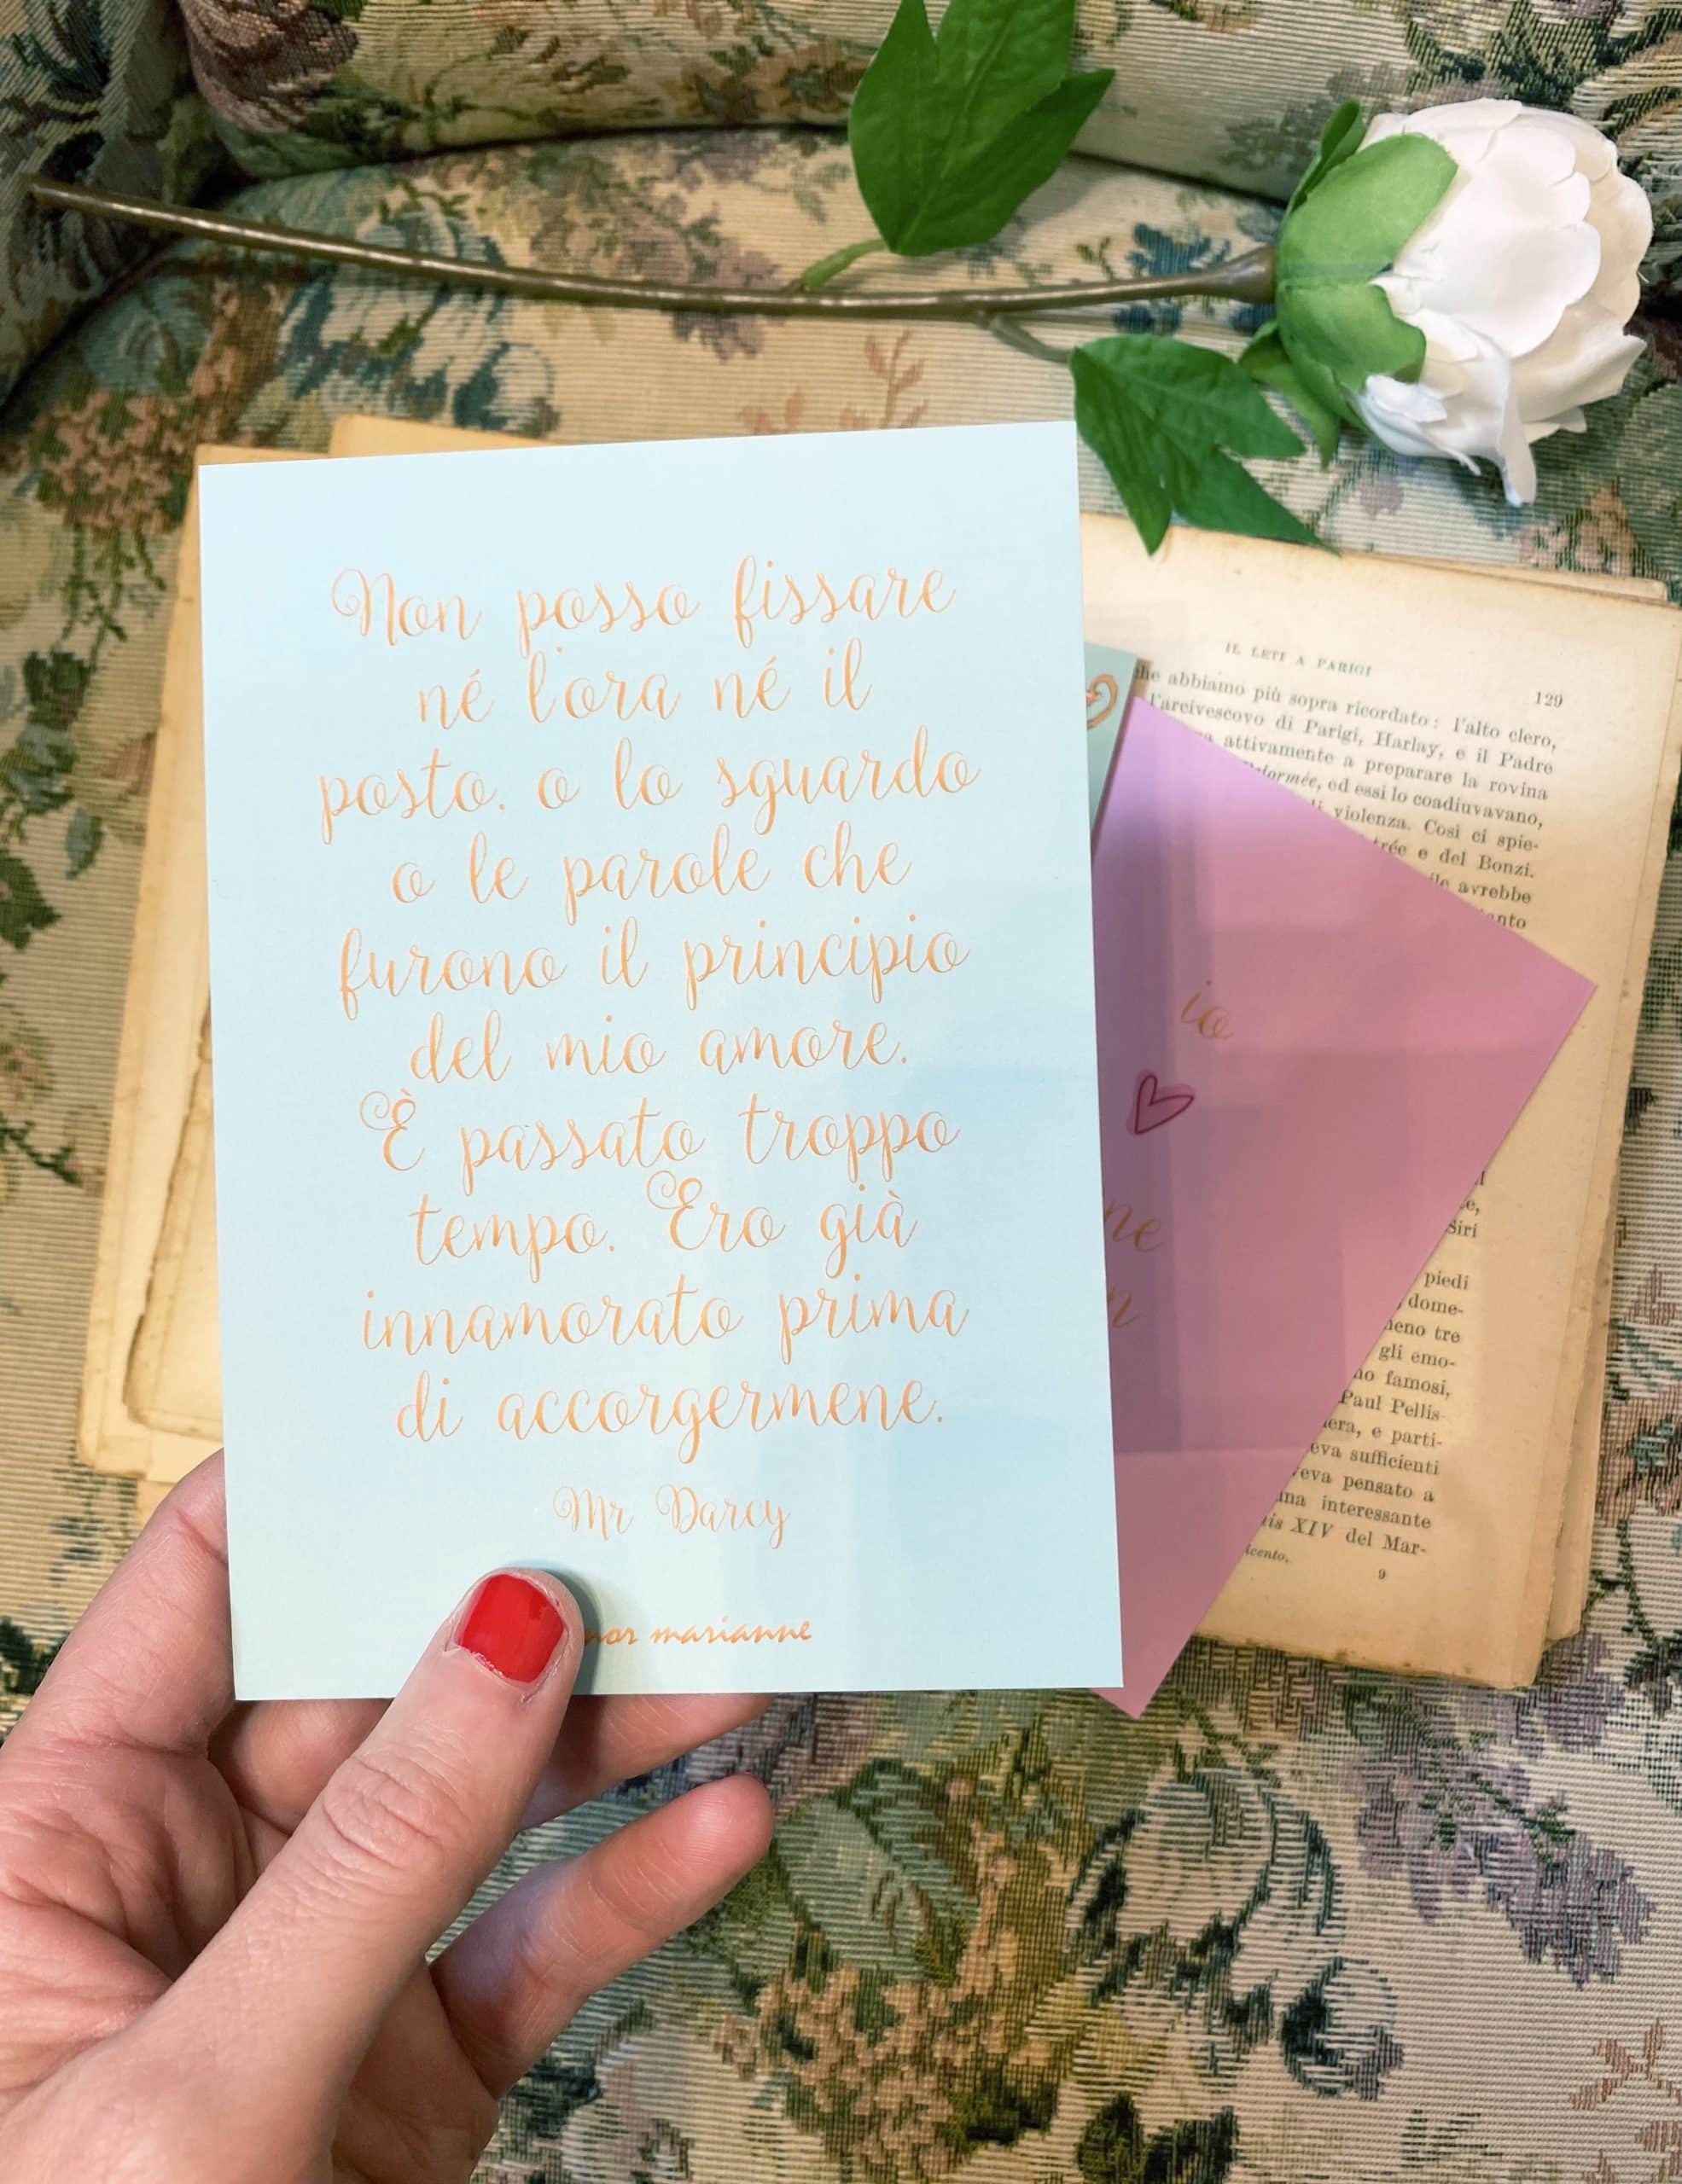 Non posso fissare
né l'ora né il
posto, o lo sguardo
o le parole che
furono il principio
del mio amore.
È passato troppo
tempo. Ero già
innamorato prima
di accorgermene.
Mr Darcy
nor marianne
io
ne
IL LETI A PARIGI
129
che abbiamo più sopra ricordato: l'alto clero,
l'arcivescovo di Parigi, Harlay, e il Padre
attivamente a preparare la rovina
ed essi lo coadiuvavano,
violenza. Così ci spie-
e del Bonzi.
avrebbe
piedi
dome-
tre
gli emo-
famosi,
Paul Pellis-
e parti-
sufficienti
pensato a
interessante
XIV del Mar-
9